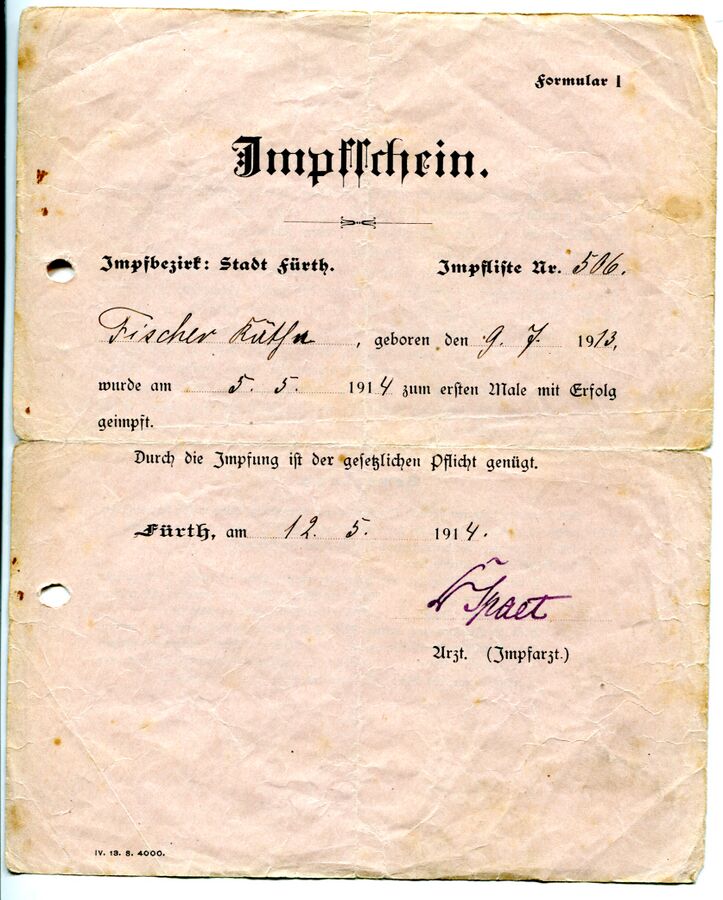 Formular 1
Impfschein.
Impfbezirk: Stadt Fürth. Impfliste Nr. 506.
Fischer Käthe, geboren den 9. 7. 1913,
wurde am 5. 5. 1914 zum ersten Male mit Erfolg
geimpft.
Durch die Impfung ist der gesetzlichen Pflicht genügt.
Fürth, am 12. 5. 1914.
Dr Spaet
Arzt. (Impfarzt.)
IV. 13. S. 4000.